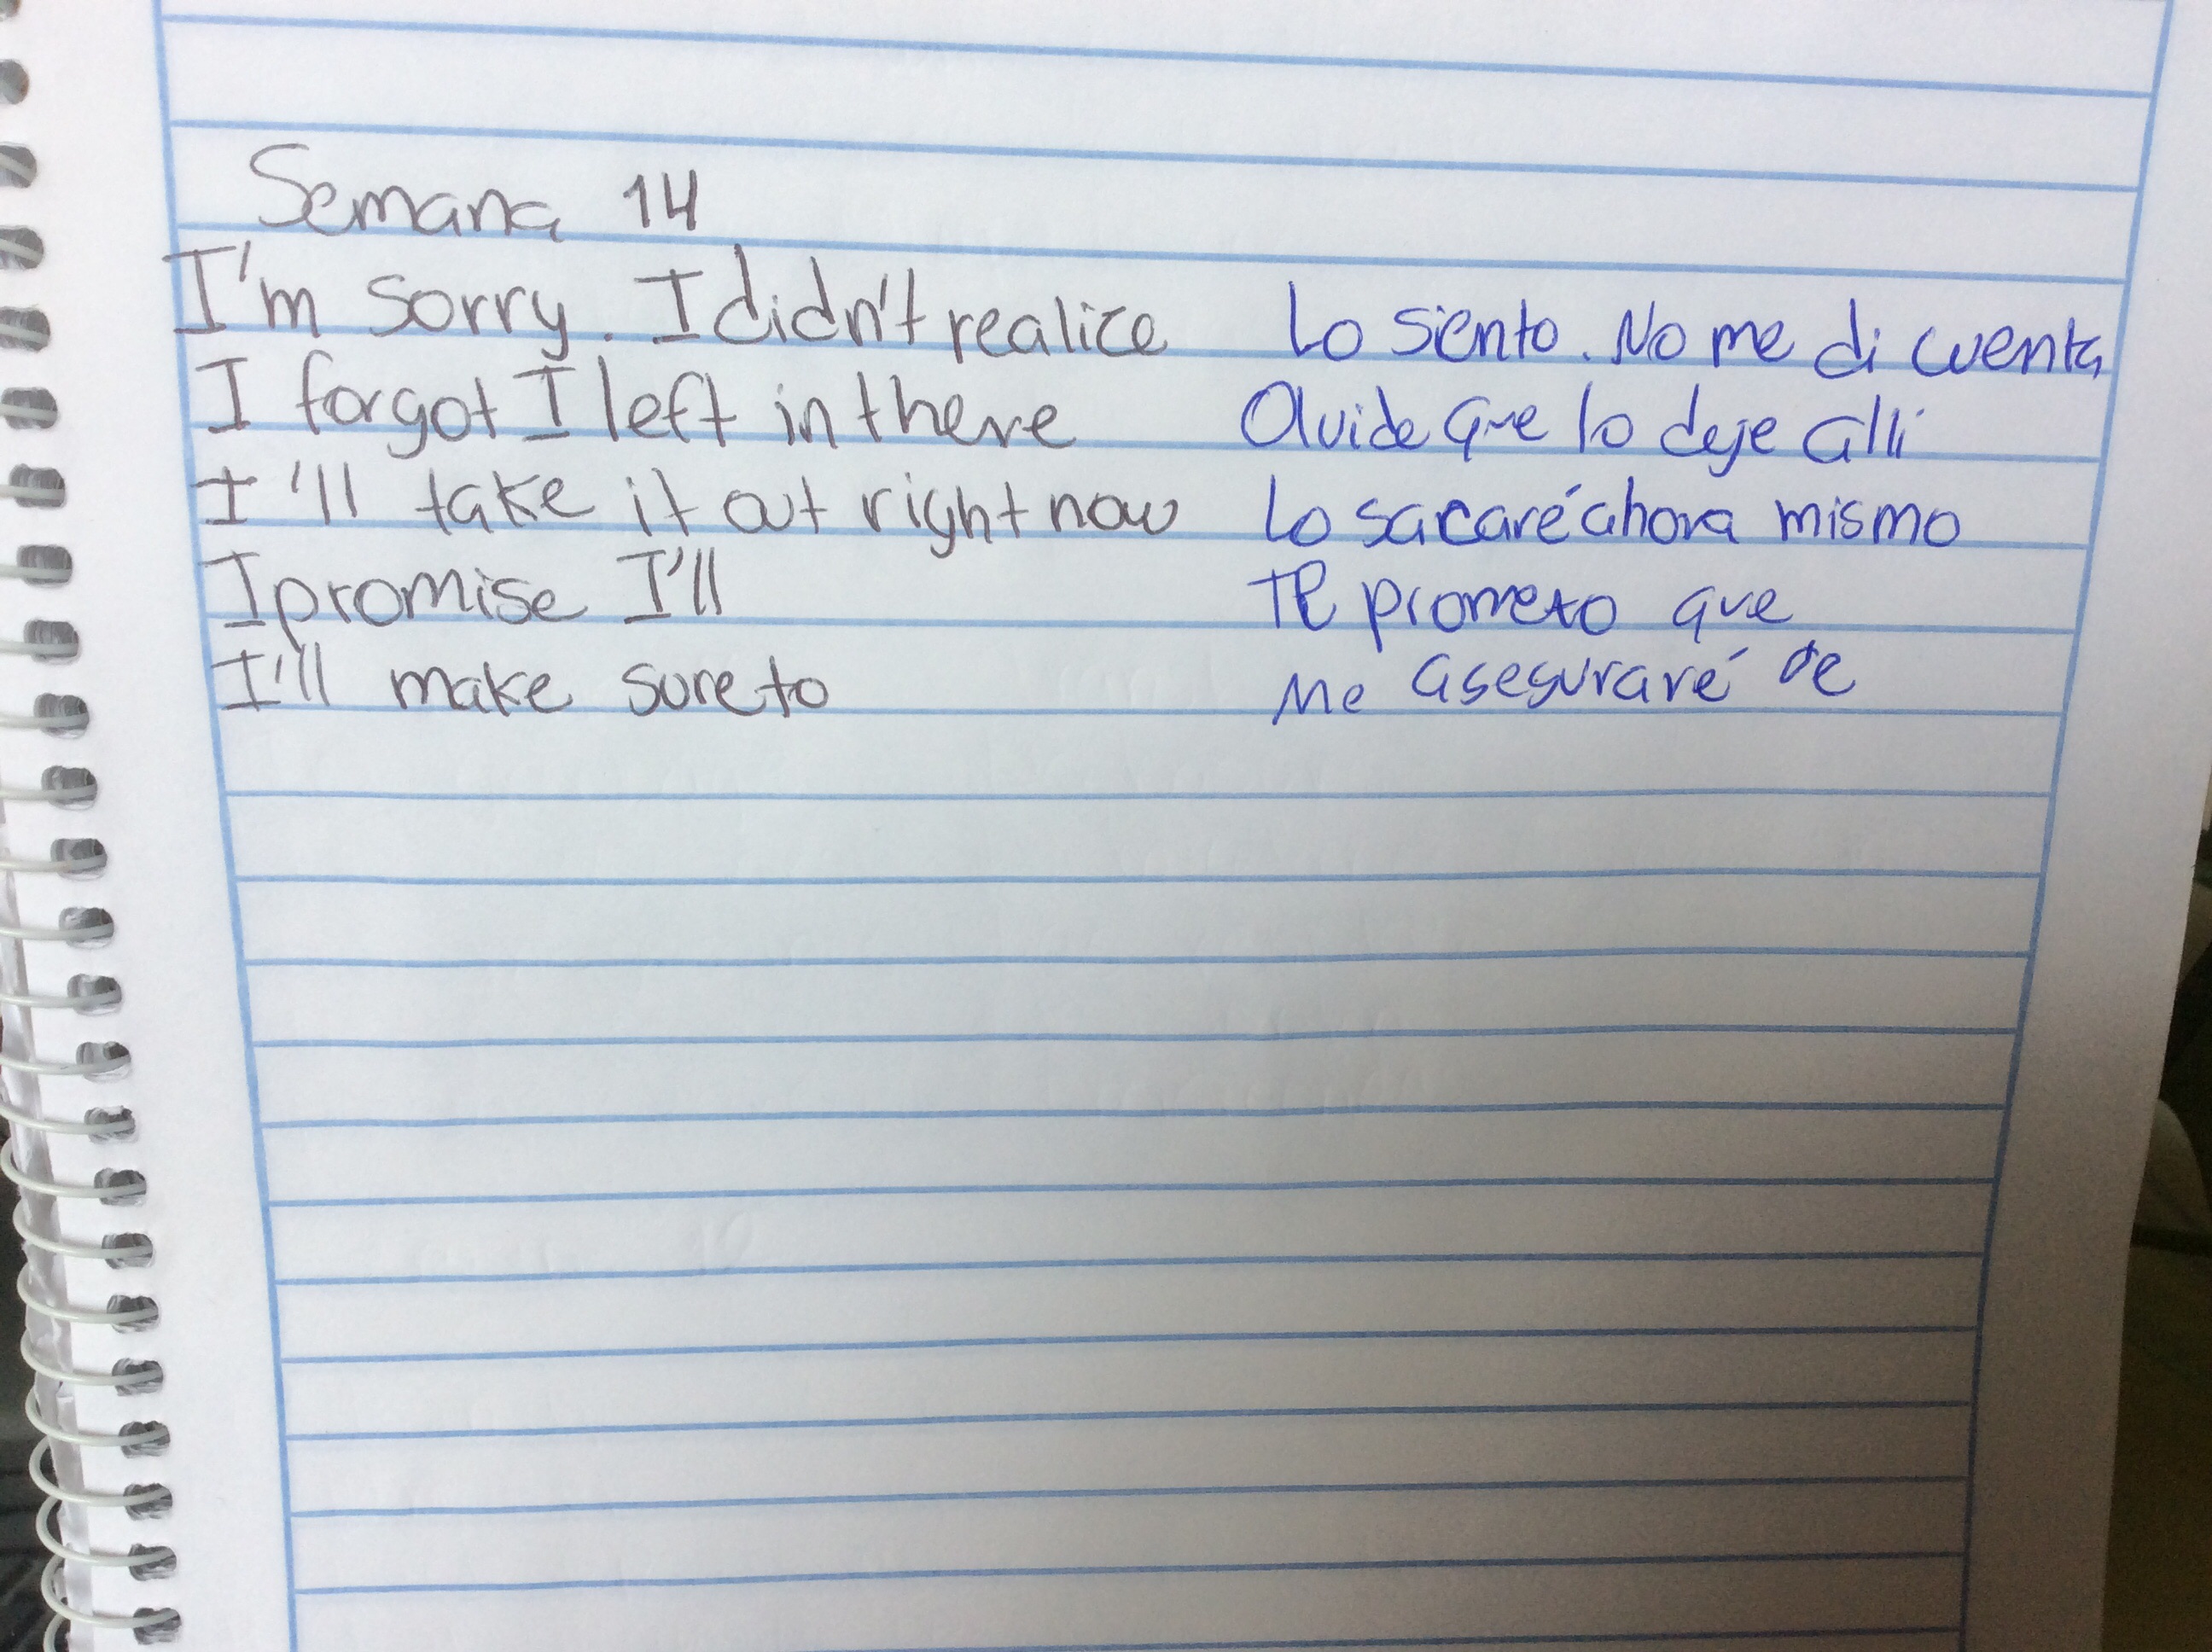 Semana 14
I'm sorry. I didn't realice Lo siento. No me di cuenta
I forgot I left in there Olvide que lo deje alli
I'll take it out right now Lo sacaré ahora mismo
I promise I'll Te prometo que
I'll make sure to Me aseguraré de